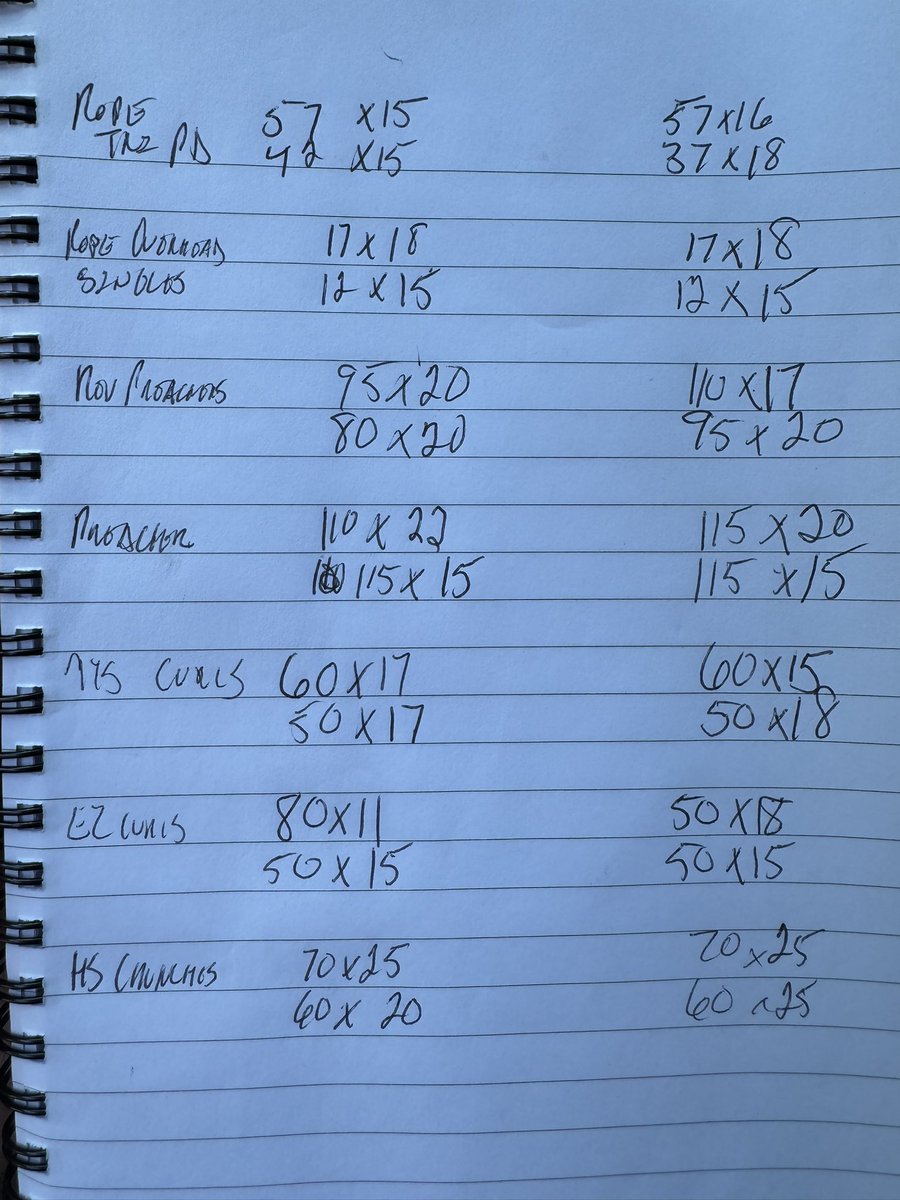 ROPE 57 x15 57x16
TRI PD 42 x15 37x18
ROPE OVERHEAD 17x18 17x18
SINGLES 12x15 12x15
95x20 110x17
80x20 95x20
PREACHER 110x22 115x20
115x15 115x15
CURLS 60x17 60x15
50x17 50x18
EZ CURLS 80x11 50x18
50x15 50x15
HS CRUNCHES 70x25 70x25
60x20 60x25